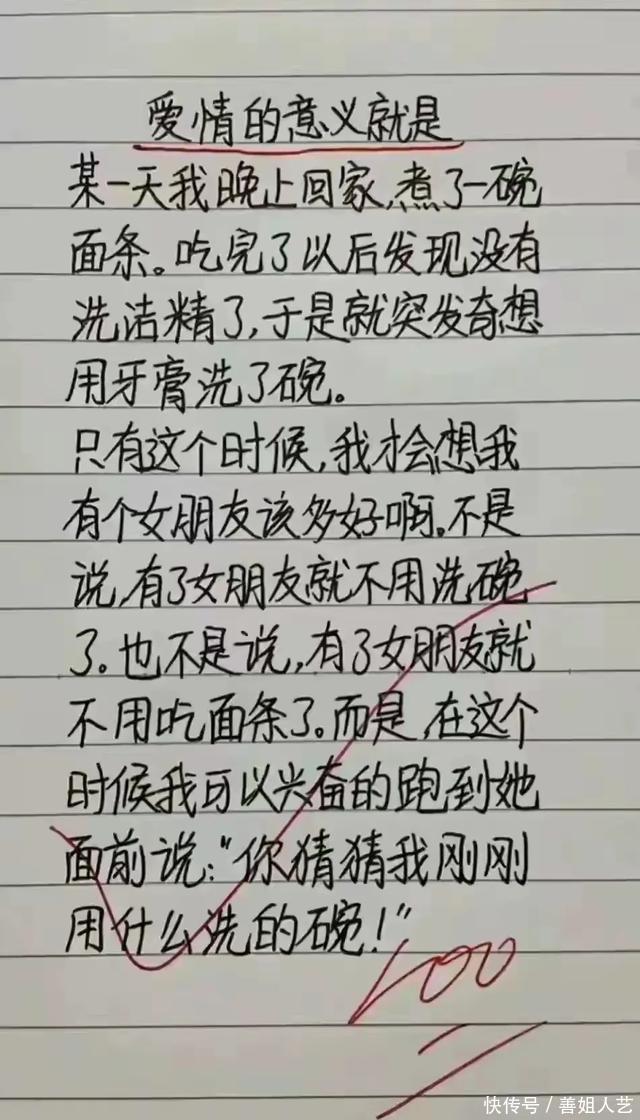 爱情的意义就是
某一天我晚上回家,煮了一碗
面条。吃完了以后发现没有
洗洁精了,于是就突发奇想
用牙膏洗了碗。
只有这个时候,我才会想我
有个女朋友该多好啊。不是
说,有了女朋友就不用洗碗
了。也不是说,有了女朋友就
不用吃面条了。而是,在这个
时候我可以兴奋的跑到她
面前说:“你猜猜我刚刚
用什么洗的碗!”
100
快传号/善姐人艺